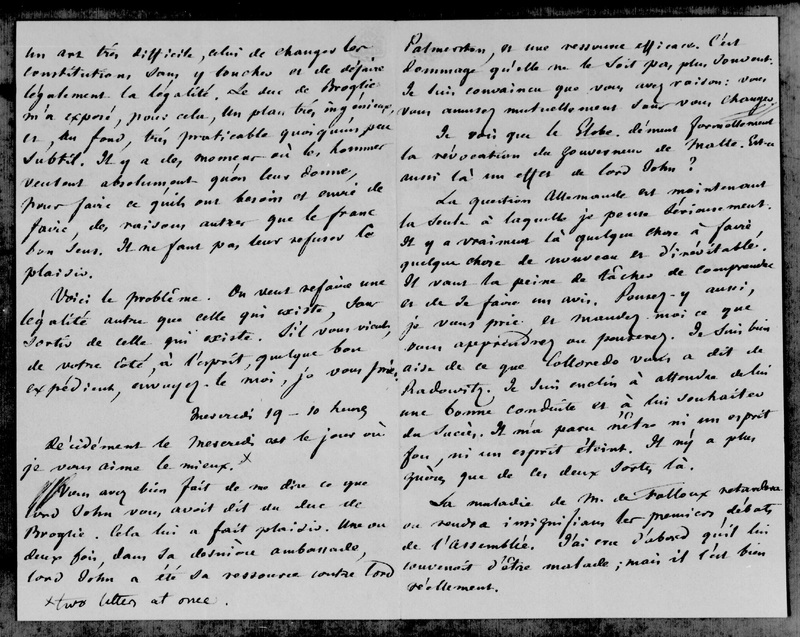 un art très difficile, celui de changer les
constitutions sans y toucher et de défaire
légalement la légalité. Le duc de Broglie
m'a exposé, pour cela, un plan très ingénieux,
et, au fond, très praticable quoiqu'un peu
subtil. Il y a des momens où les hommes
veulent absolument qu'on leur donne,
pour faire ce qu'ils ont besoin et envie de
faire, des raisons autres que le franc
bon sens. Il ne faut pas leur refuser ce
plaisir.
Voici le problème. On veut refaire une
légalité autre que celle qui existe, sans
sortir de celle qui existe. S'il vous vient,
de votre côté, à l'esprit, quelque bon
expédient, envoyez-le moi, je vous prie.
Mercredi 19 - 10 heures
Décidément le Mercredi est le jour où
je vous aime le mieux. x
Vous avez bien fait de me dire ce que
lord John vous avoit dit du duc de
Broglie. Cela lui a fait plaisir. Une ou
deux fois, dans sa dernière ambassade,
lord John a été sa ressource contre lord
x two letters at once.
Palmerston, et une ressource efficace. C'est
dommage qu'elle ne le soit pas plus souvent.
Je suis convaincu que vous avez raison: vous
vous amusez mutuellement sans vous changer.
Je vois que le Globe dément formellement
la révocation du gouverneur de Malte. Est-ce
aussi là un effet de lord John?
La question Allemande est maintenant
la seule à laquelle je pense sérieusement.
Il y a vraiment là quelque chose à faire,
quelque chose de nouveau et d'inévitable.
Il vaut la peine de tâcher de comprendre
et de se faire un avis. Pensez-y aussi,
je vous prie et mandez-moi ce que
vous apprendrez ou penserez. Je suis bien
aise de ce que Colloredo vous a dit de
Radowitz. Je suis enclin à attendre de lui
une bonne conduite et à lui souhaiter
du succès. Il m'a paru n'être ni un esprit
fou, ni un esprit éteint. Il n'y a plus
guères que de ces deux sortes là.
La maladie de M. de Falloux retardera
ou rendra insignifians les premiers débats
de l'Assemblée. J'ai cru d'abord qu'il lui
convenoit d'être malade; mais il l'est bien
réellement.